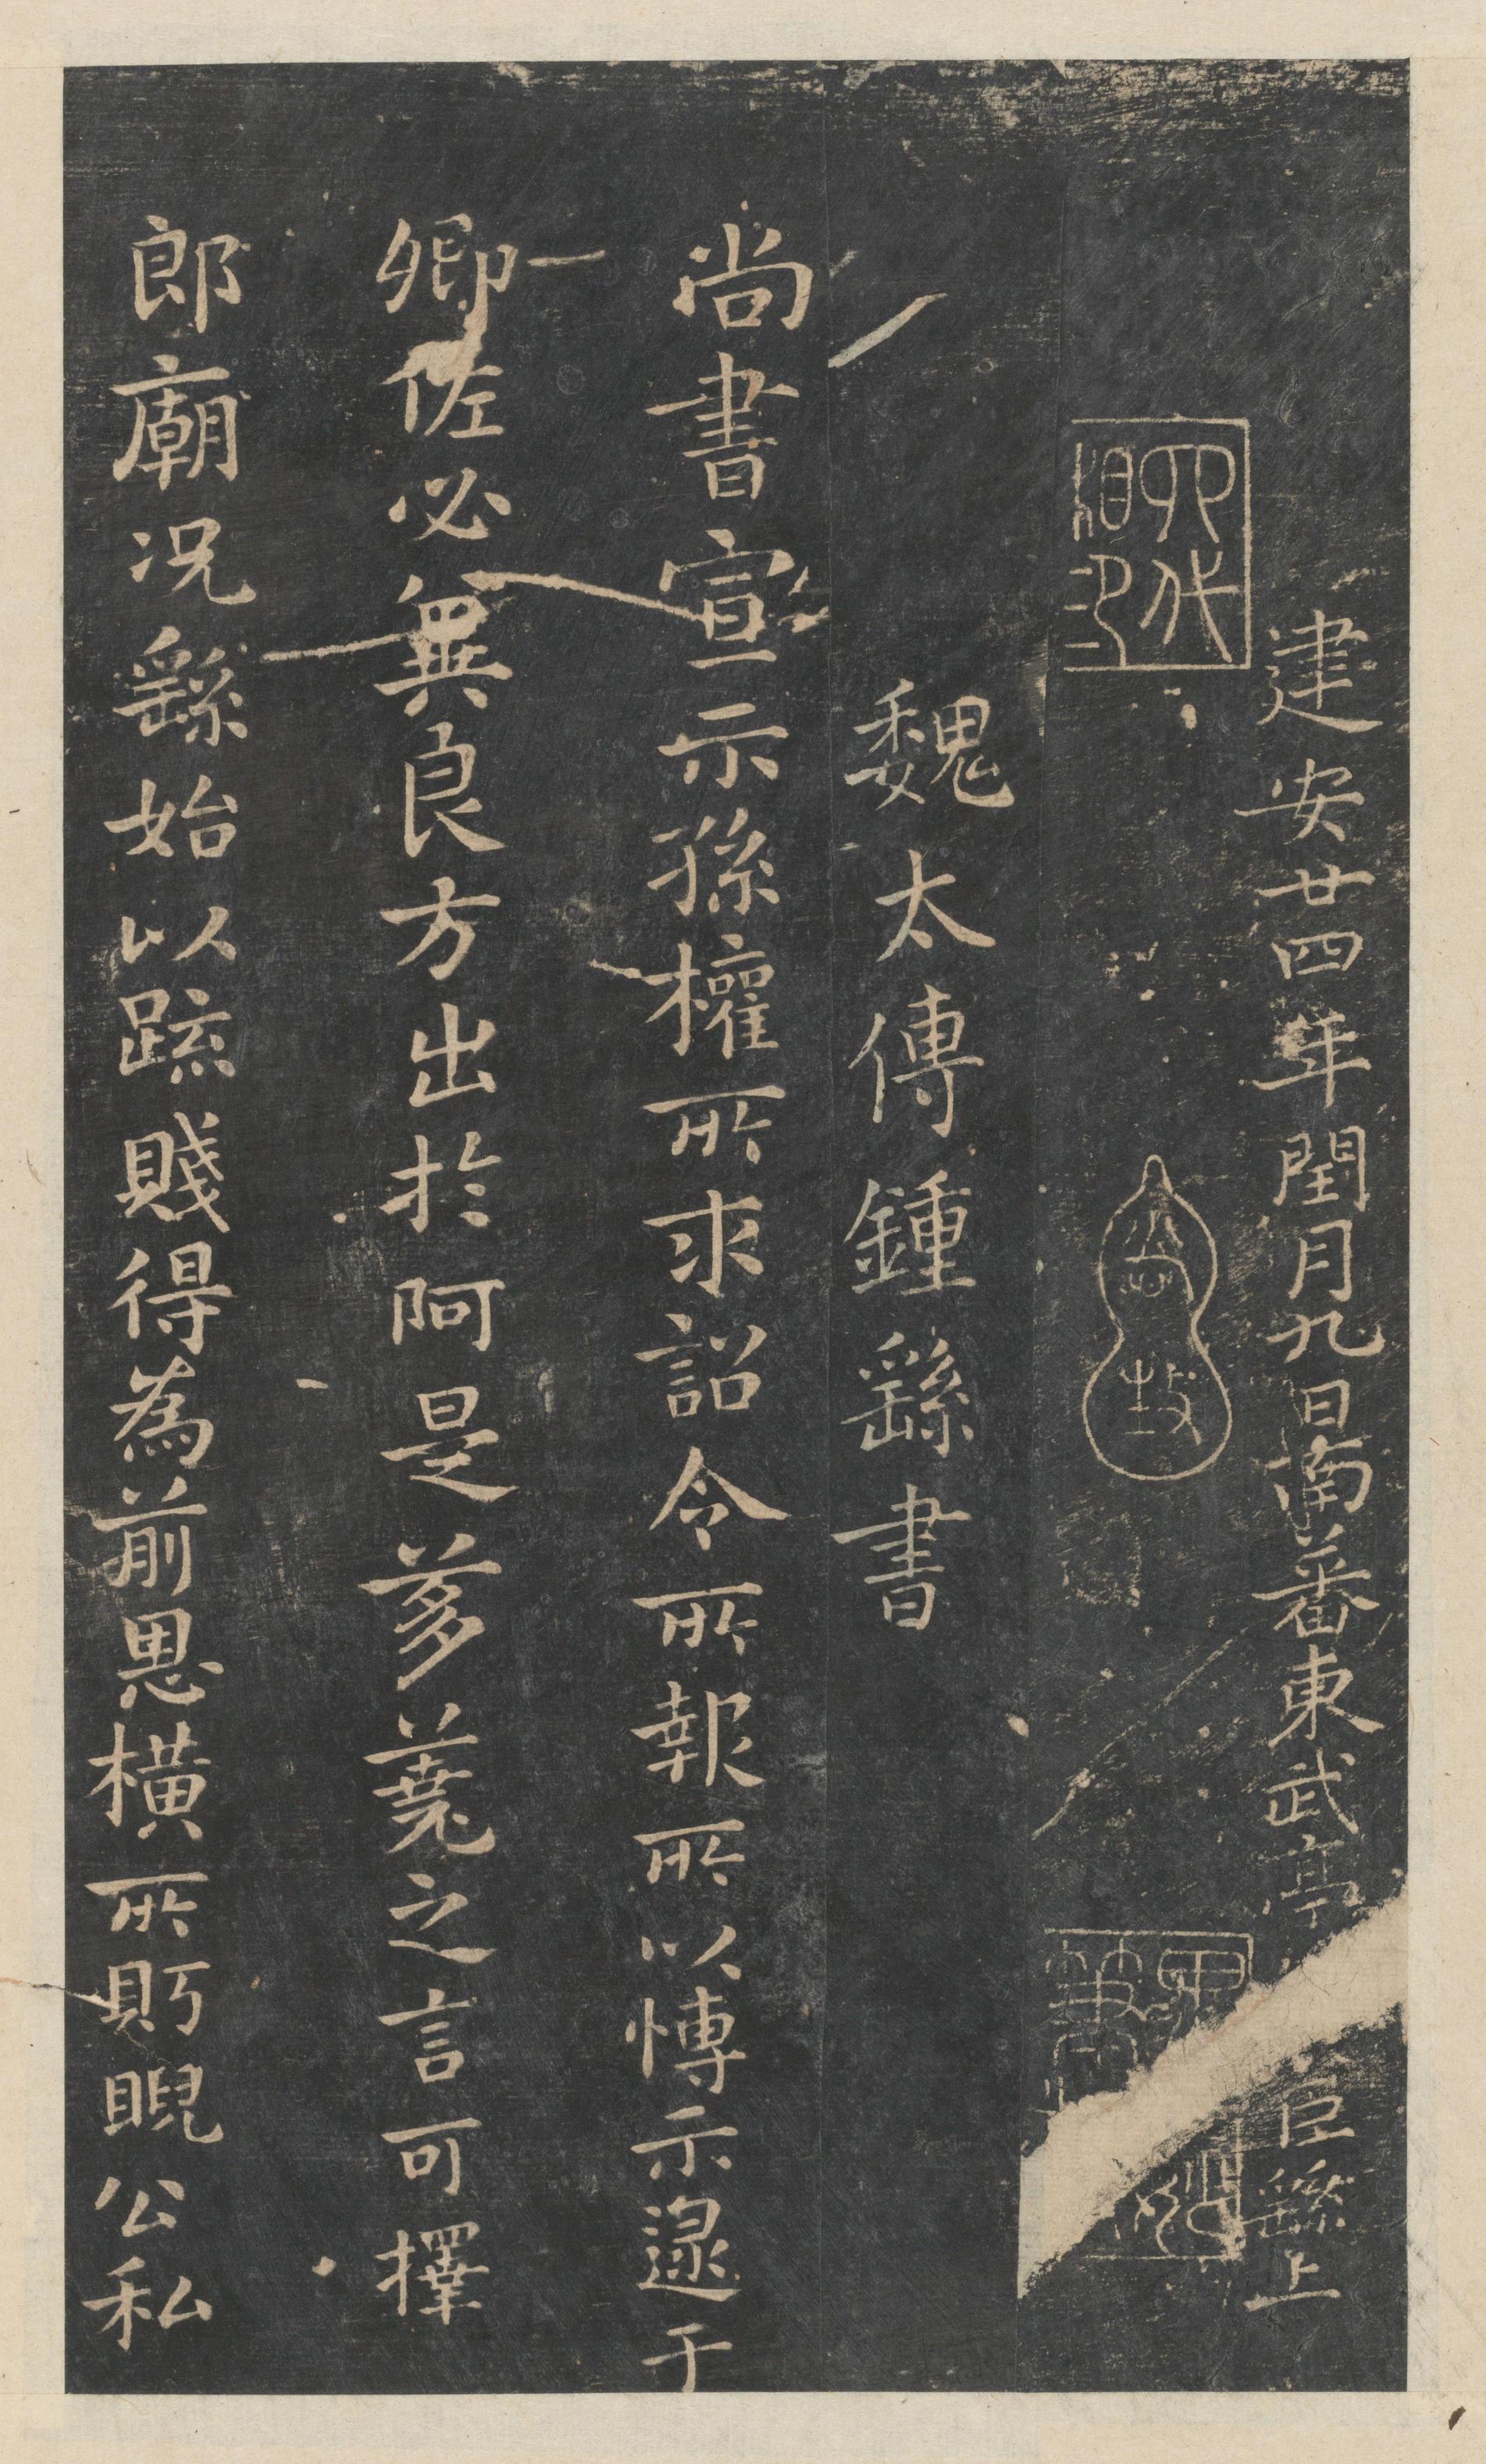 建安廿四年閏月九日南蕃東武亭
臣繇上
魏太傅鍾繇書
尚書宣示孫權所求詔令所報所以博示逮于
卿佐必異良方出於阿是芻蕘之言可擇
郎廟况繇始以疏賤得為前恩橫所盻睨公私